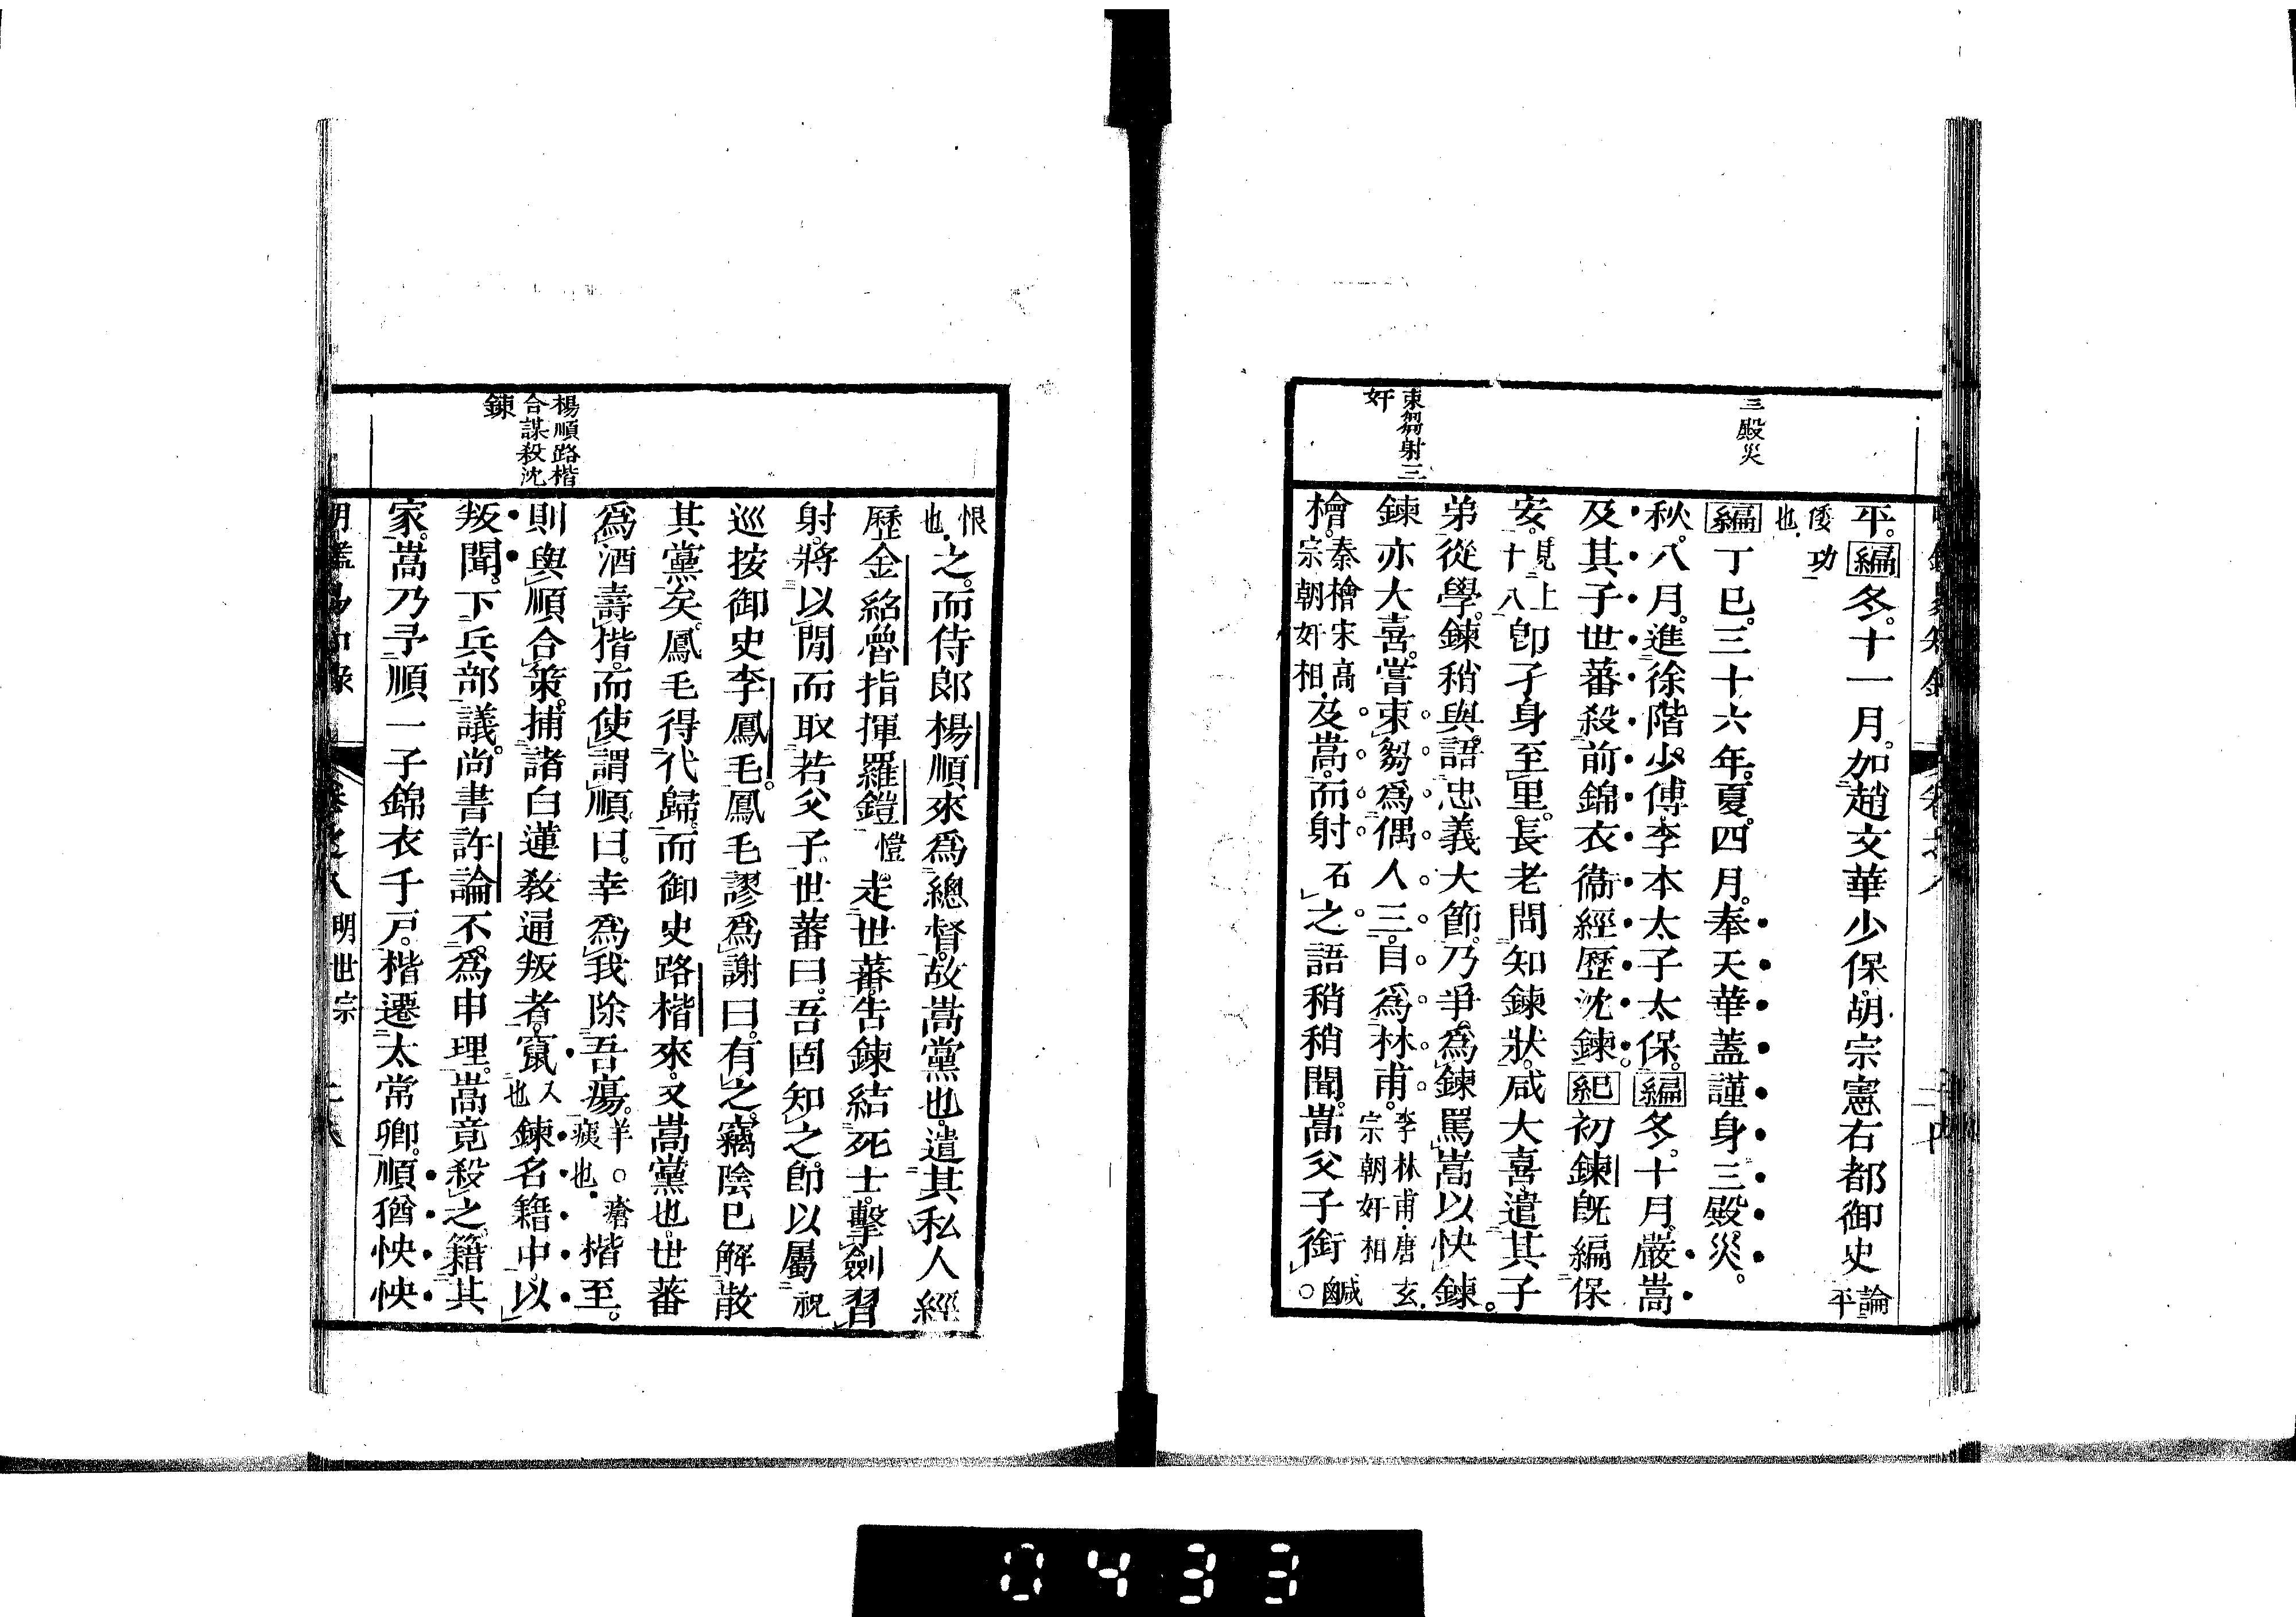 三殿災
東芻射三
奸
平。編冬。十一月。加趙文華少保。胡宗憲右都御史論平
倭功也。
編丁巳。三十六年。夏。四月。奉天華蓋謹身三殿災。
秋。八月。進徐階少傅。李本太子太保。編冬。十月。嚴嵩
及其子世蕃殺前錦衣衞經歷沈鍊。紀初鍊旣編保
安。見上十八卽孑身至里。長老問知鍊狀。咸大喜。遣其子
弟從學。鍊稍與語忠義大節。乃爭爲鍊罵嵩以快鍊。
鍊亦大喜。嘗束芻爲偶人三。自爲林甫。李林甫唐玄宗朝奸相
檜。秦檜宋高宗朝奸相及嵩。而射石之。語稍稍聞。嵩父子銜鹹○
楊順路楷
合謀殺沈
鍊
恨也。之。而侍郎楊順來爲總督。故嵩黨也。遣其私人經
歷金紹魯指揮羅鎧愷走世蕃。告鍊結死士。擊劍習
射。將以閒而取若父子。世蕃曰。吾固知之。卽以屬祝
巡按御史李鳳毛。鳳毛謬爲謝曰。有之。竊陰已解散
其黨矣。鳳毛得代歸。而御史路楷來。又嵩黨也。世蕃
爲酒壽楷。而使謂順曰。幸爲我除吾瘍。羊○瘡痍也。楷至。
則與順合策。捕諸白蓮敎通叛者。竄入也鍊名籍中。以
叛聞。下兵部議。尚書許論不爲申理。嵩竟殺之。籍其
家。嵩乃予順一子錦衣千戶。楷遷太常卿。順猶怏怏
卷之八 明世宗